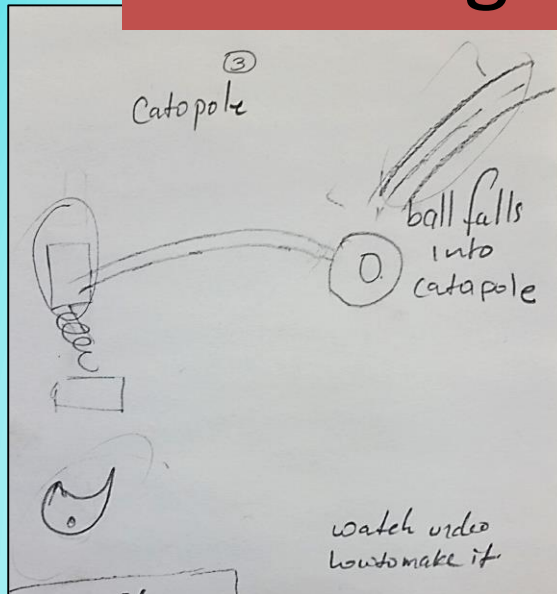 ③
Catopole
ball falls
into
catapole
watch video
how to make it